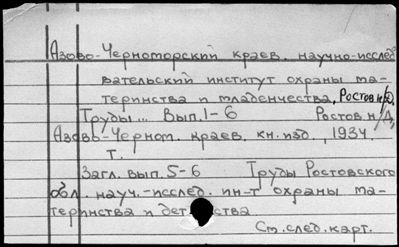 Азово-Черноморский краев. научно-исслед
вательский институт охраны ма-
теринства и младенчества, Ростов н/Д.
Труды... Вып. 1-6 Ростов н/Д,
Азово-Черном. краев. кн. изд., 1934.
т.
Загл. вып. 5-6 Труды Ростовского
обл. науч.-исслед. ин-т охраны ма-
теринства и дет ства
См. след. карт.